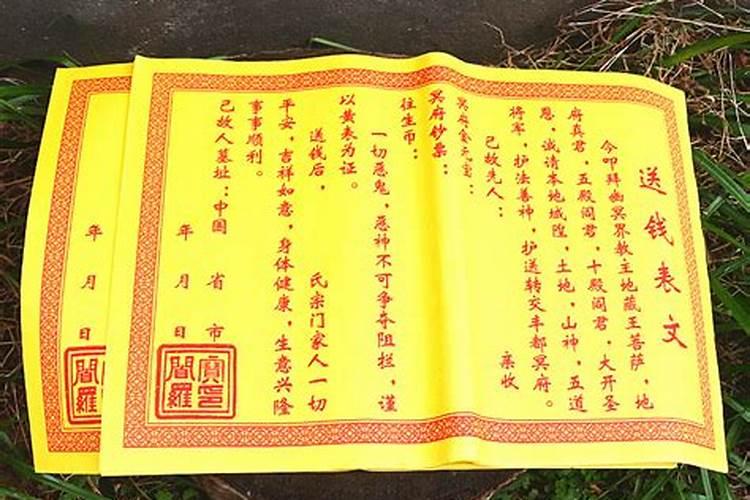 送钱表文
今叩拜幽冥界教主地藏王菩萨，地
府真君，五殿阎君，十殿阎君，大开圣
恩，诚请本地城隍，土地，山神，五道
将军，护法善神，护送转交丰都冥府。
已故先人：
亲收
冥府金元宝：
冥府钞票：
往生币：
一切恶鬼，恶神不可争夺阻拦，谨
以黄表为证。
送钱后，
氏宗门家人一切
平安，吉祥如意，身体健康，生意兴隆
事事顺利。
已故人墓址：中国
省
市
年
月
日
閻羅寶印
年
月
日
閻羅